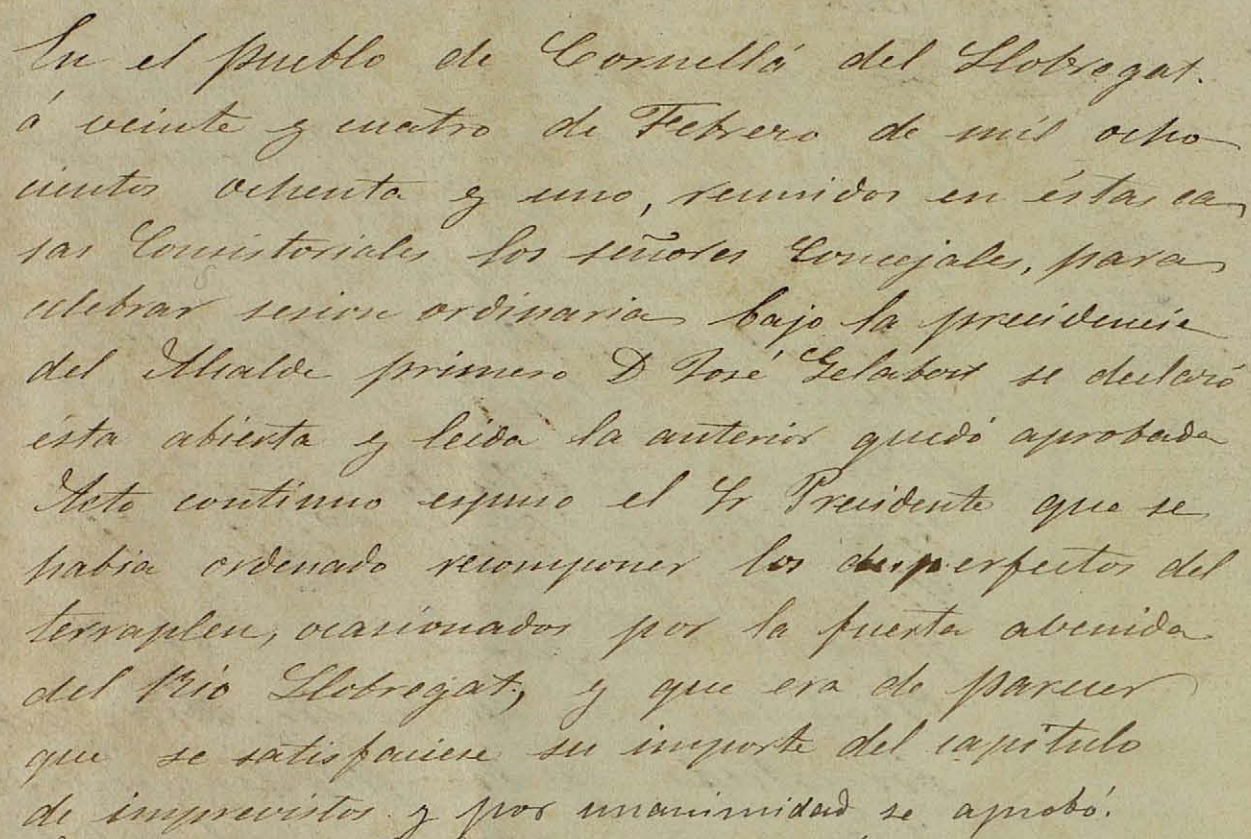 En el pueblo de Cornellá del Llobregat.
á veinte y cuatro de Febrero de mil ocho
cientos ochenta y uno, reunidos en éstas ca
sas Consistoriales los señores Concejales, para
celebrar sesion ordinaria bajo la presidencia
del Alcalde primero D José Gelabert se declaró
ésta abierta y leida la anterior quedó aprobada
Acto continuo espuso el Sr Presidente que se
habia ordenado recomponer los desperfectos del
terraplen, ocasionados por la fuerte avenida
del Rio Llobregat, y que era de parecer
que se satisfaciese su importe del capítulo
de imprevistos y por unanimidad se aprobó.